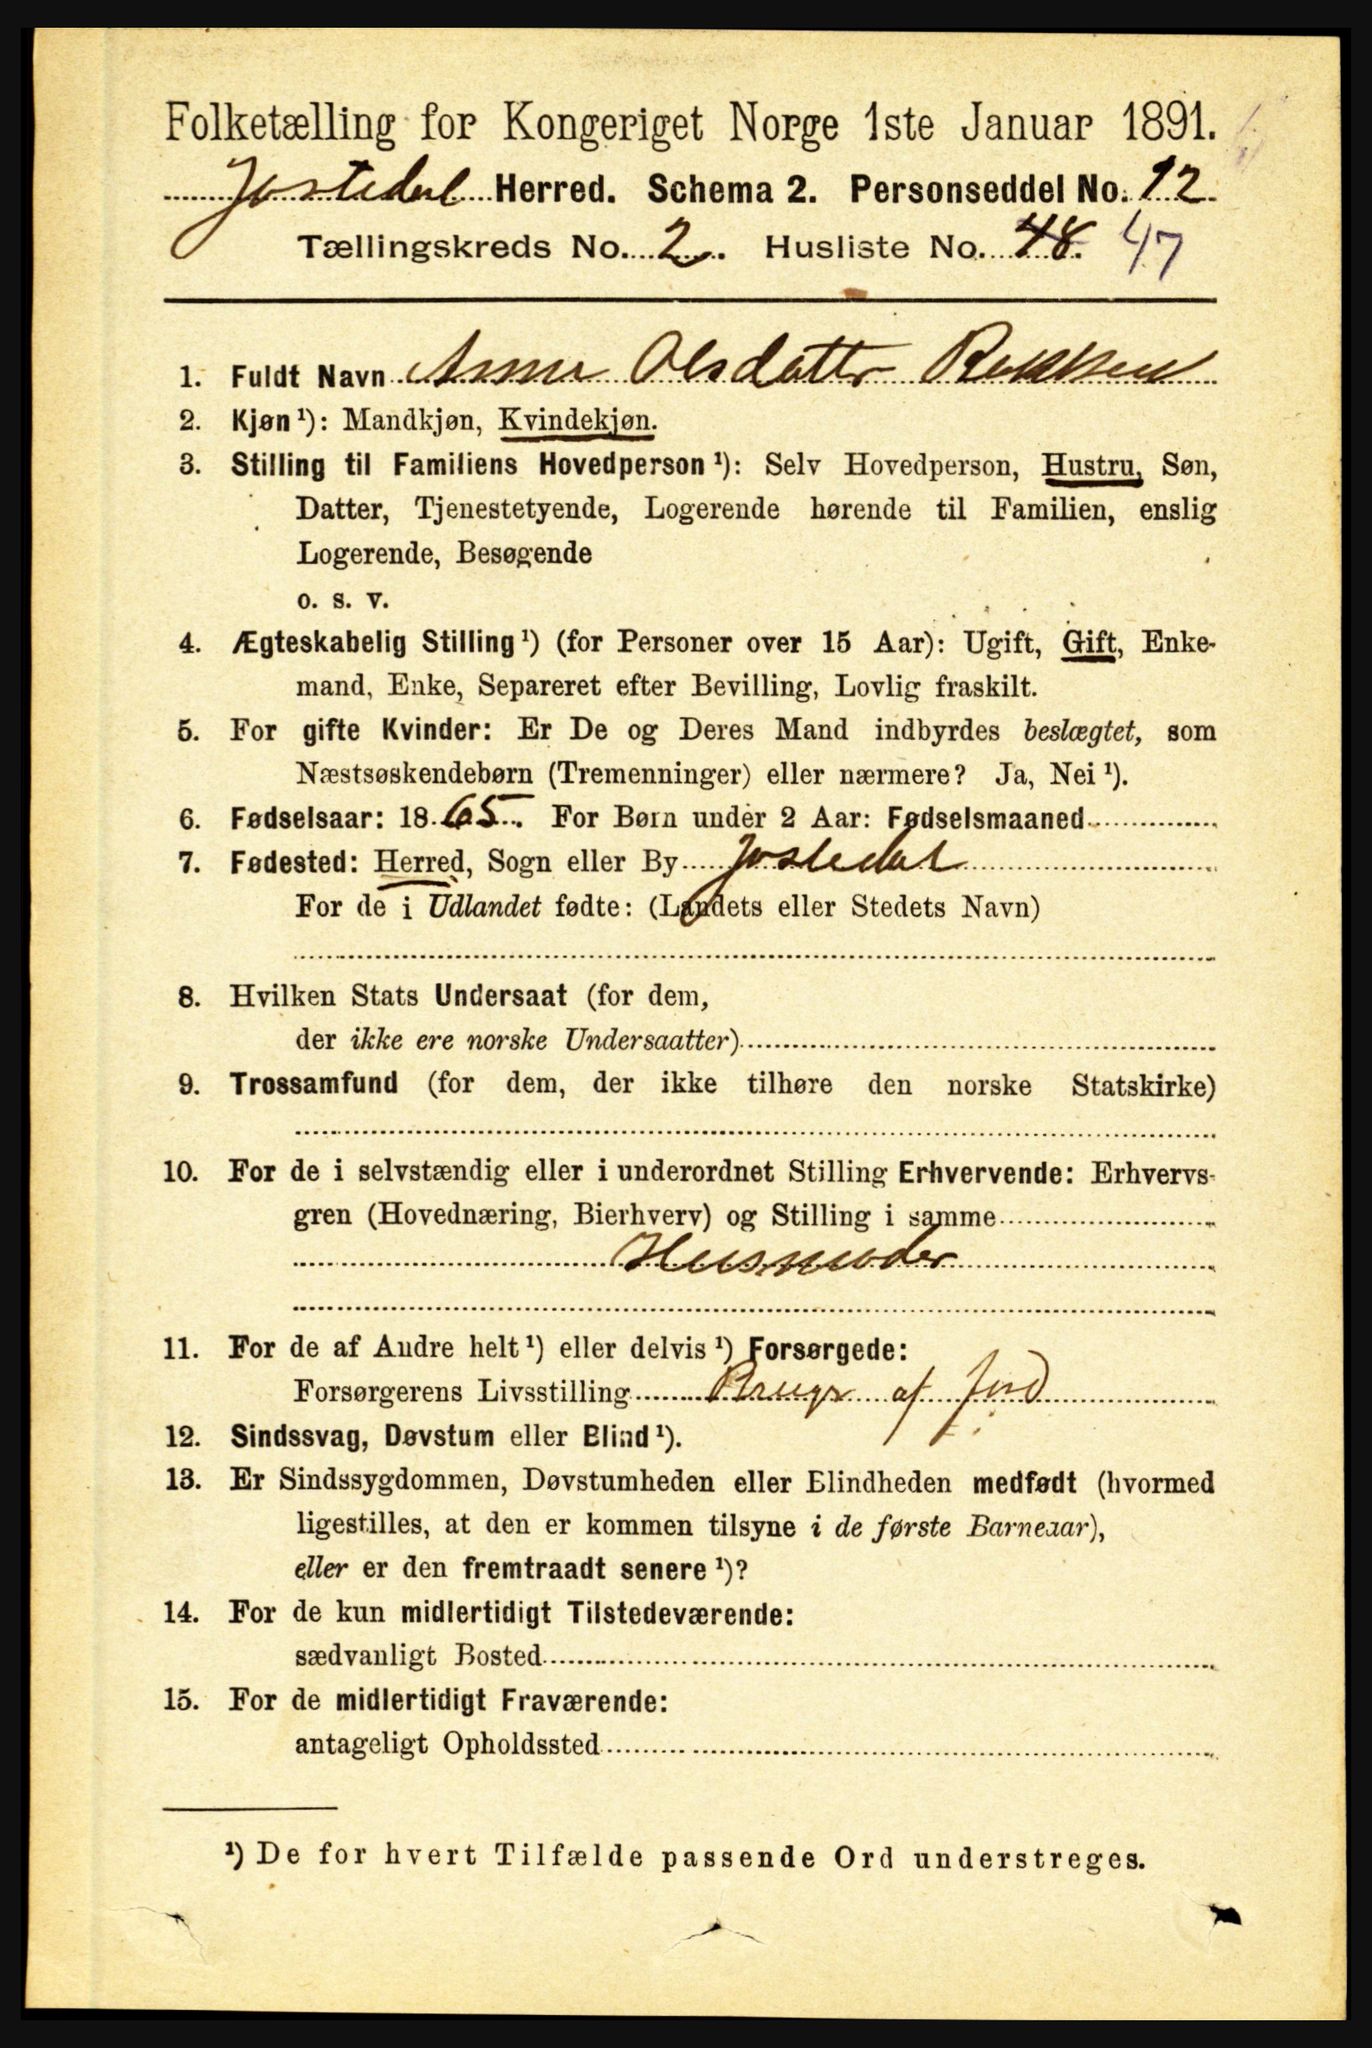 Folketælling for Kongeriget Norge 1ste Januar 1891.
Jostedal Herred. Schema 2. Personseddel No. 12
Tællingskreds No. 2. Husliste No. 48. 47
1. Fuldt Navn Anna Olsdatter
2. Kjøn¹): Mandkjøn, Kvindekjøn.
3. Stilling til Familiens Hovedperson¹): Selv Hovedperson, Hustru, Søn,
Datter, Tjenestetyende, Logerende hørende til Familien, enslig
Logerende, Besøgende
o. s. v.
4. Ægteskabelig Stilling¹) (for Personer over 15 Aar): Ugift, Gift, Enke-
mand, Enke, Separeret efter Bevilling, Lovlig fraskilt.
5. For gifte Kvinder: Er De og Deres Mand indbyrdes beslægtet, som
Næstsøskendebørn (Tremenninger) eller nærmere? Ja, Nei¹).
6. Fødselsaar: 1865. For Børn under 2 Aar: Fødselsmaaned
7. Fødested: Herred, Sogn eller By Jostedal
For de i Udlandet fødte: (Landets eller Stedets Navn)
8. Hvilken Stats Undersaat (for dem,
der ikke ere norske Undersaatter)
9. Trossamfund (for dem, der ikke tilhøre den norske Statskirke)
10. For de i selvstændig eller i underordnet Stilling Erhvervende: Erhvervs-
gren (Hovednæring, Bierhverv) og Stilling i samme
Husmoder
11. For de af Andre helt¹) eller delvis¹) Forsørgede:
Forsørgerens Livsstilling Bruger af Jord
12. Sindssvag, Døvstum eller Blind¹).
13. Er Sindssygdommen, Døvstumheden eller Blindheden medfødt (hvormed
ligestilles, at den er kommen tilsyne i de første Barneaar),
eller er den fremtraadt senere¹)?
14. For de kun midlertidigt Tilstedeværende:
sædvanligt Bosted
15. For de midlertidigt Fraværende:
antageligt Opholdssted
¹) De for hvert Tilfælde passende Ord understreges.